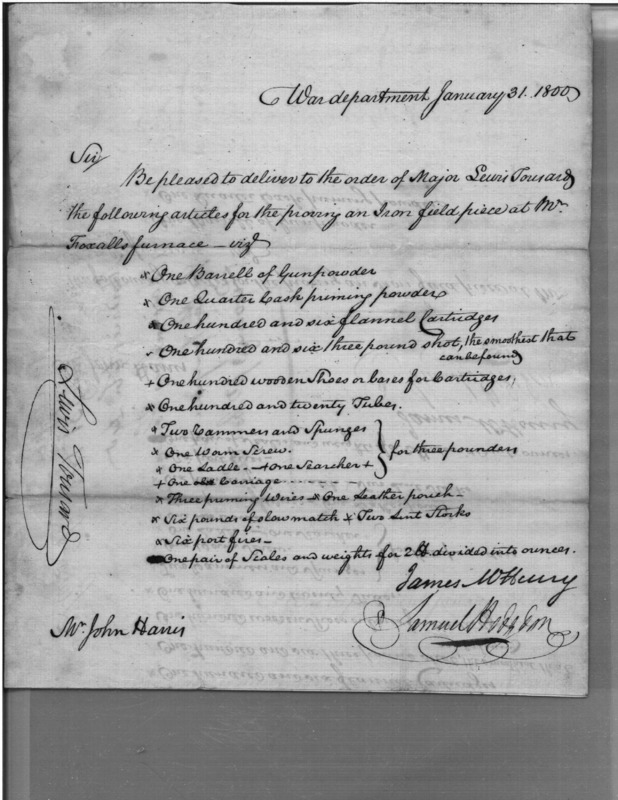 War department January 31. 1800
Sir
Be pleased to deliver to the order of Major Lewis Tousard
the following articles for the proving an Iron field piece at Mr.
Foxalls furnace – viz
× One Barrell of Gunpowder
× One Quarter Cask priming powder
× One hundred and six flannel Cartridges
- One hundred and six three pound shot, the smoothest that
can be found
+ One hundred wooden Shoes or bases for Cartridges,
× One hundred and twenty Tubes.
× Two Rammers and Spunges
× One Worm Screw.
× One Ladle - + One Searcher +
for three pounders
+ One old Carriage
× Three priming Wires × One Leather pouch –
× Six pounds of slow match × Two Lint Stocks
× Six port fires –
One pair of Scales and weights for 2 lb divided into ounces.
James McHenry
Samuel Hodgdon
Mr. John Harris
Lewis Tousard